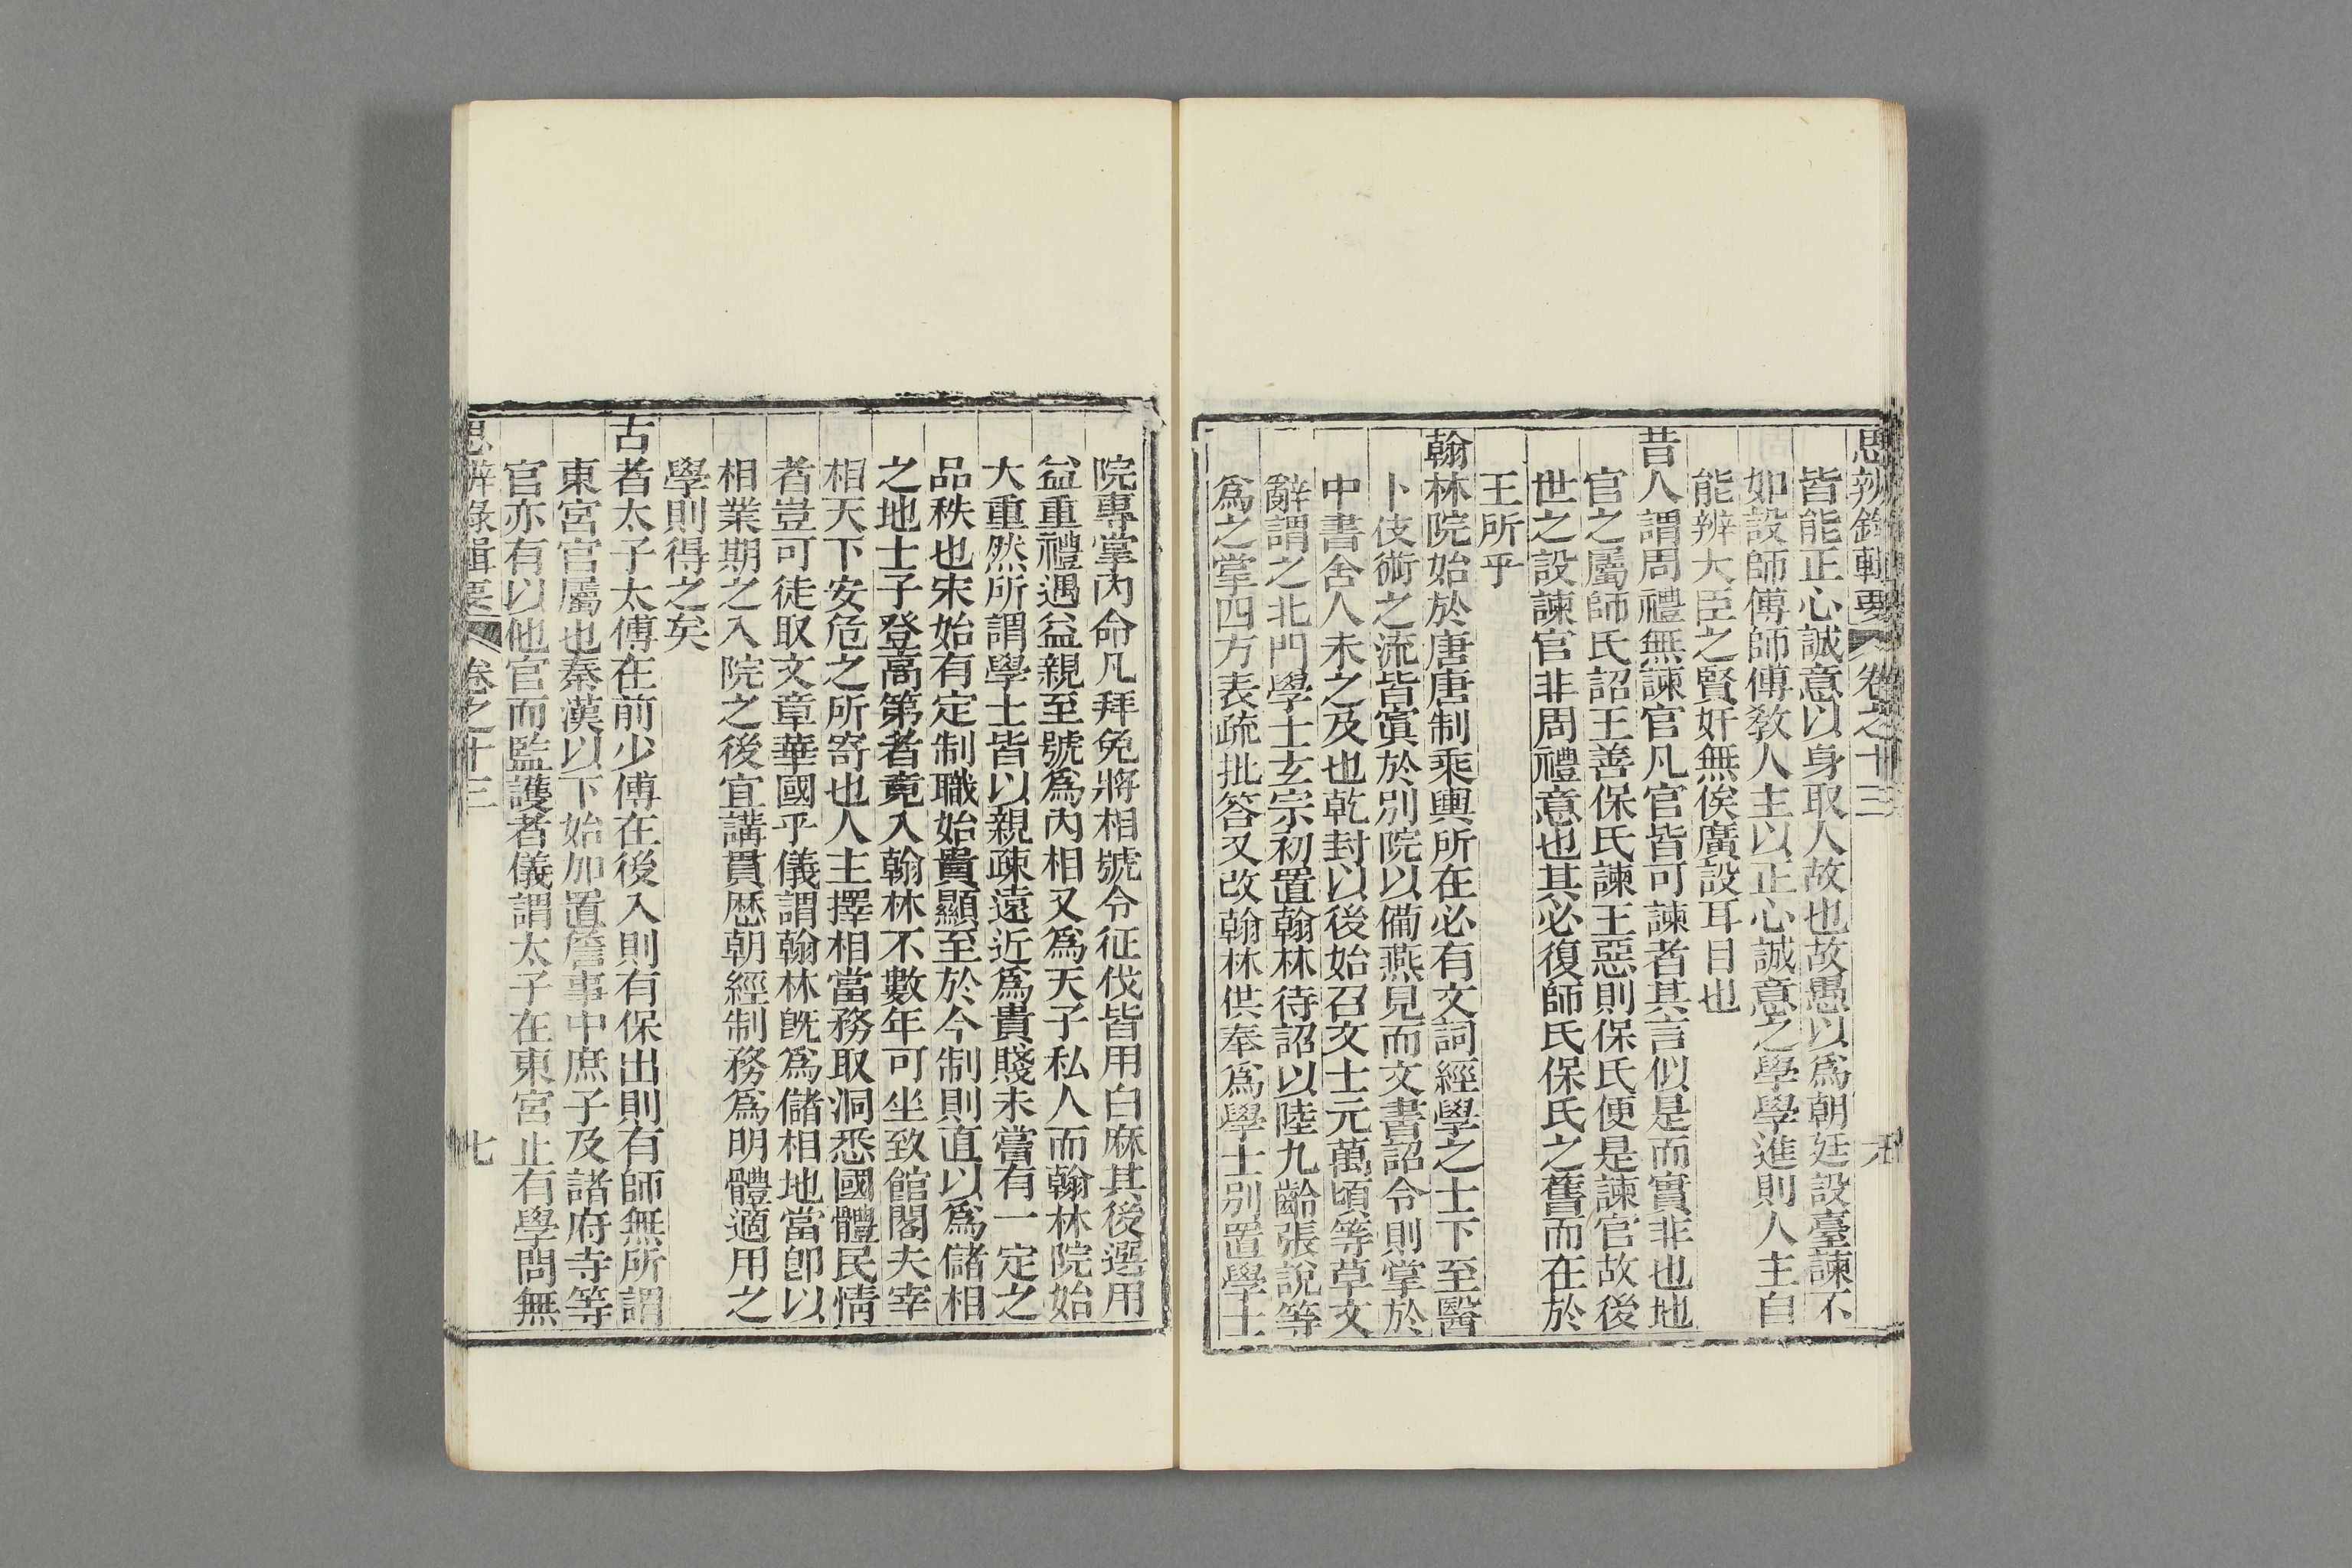 思辨錄輯要 卷之十三
皆能正心誠意以身取人故也故愚以爲朝廷設臺諫不
如設師傅師傅敎人主以正心誠意之學學進則人主自
能辨大臣之賢奸無俟廣設耳目也
昔人謂周禮無諫官凡官皆可諫者其言似是而實非也地
官之屬師氏詔王善保氏諫王惡則保氏便是諫官故後
世之設諫官非周禮意也其必復師氏保氏之舊而在於
王所乎
翰林院始於唐唐制乘輿所在必有文詞經學之士下至醫
卜伎術之流皆寘於別院以備燕見而文書詔令則掌於
中書舍人未之及也乾封以後始召文士元萬頃等草文
辭謂之北門學士玄宗初置翰林待詔以陸九齡張說等
爲之掌四方表疏批答又改翰林供奉爲學士別置學士
院專掌內命凡拜免將相號令征伐皆用白麻其後選用
益重禮遇益親至號爲內相又爲天子私人而翰林院始
大重然所謂學士皆以親疎遠近爲貴賤未嘗有一定之
品秩也宋始有定制職始貴顯至於今制則直以爲儲相
之地士子登高第者竟入翰林不數年可坐致館閣夫宰
相天下安危之所寄也人主擇相當務取洞悉國體民情
者豈可徒取文章華國乎儀謂翰林旣爲儲相地當卽以
相業期之入院之後宜講貫歷朝經制務爲明體適用之
學則得之矣
古者太子太傅在前少傅在後入則有保出則有師無所謂
東宮官屬也秦漢以下始加置詹事中庶子及諸府寺等
官亦有以他官而監護者儀謂太子在東宮止有學問無
思辨錄輯要 卷之十三 七